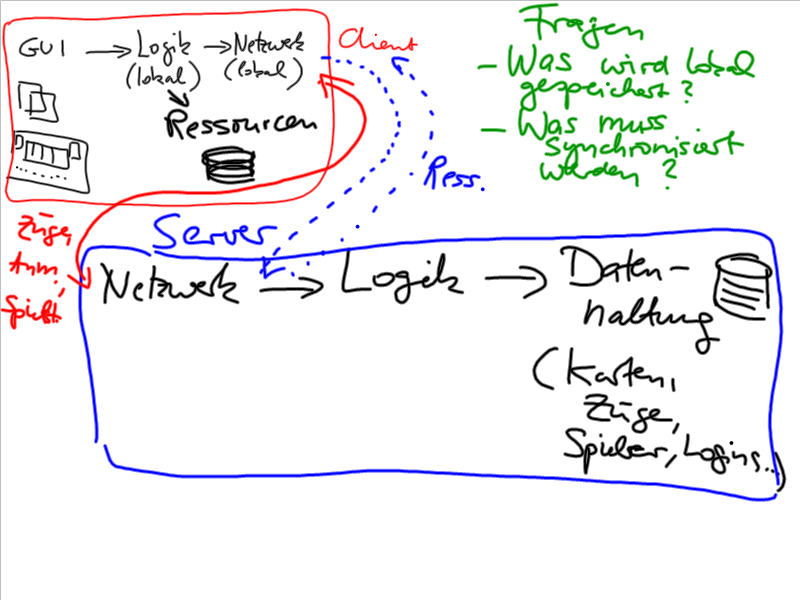 GUI → Logik → Netzwerk
(lokal) (lokal)
Client
Ressourcen
Fragen
- Was wird lokal
gespeichert?
- Was muss
synchronisiert
werden?
Ress.
Züge,
Anm.
Server
Netzwerk → Logik → Daten-
haltung
(Karten,
Züge,
Spieler, Logins..)